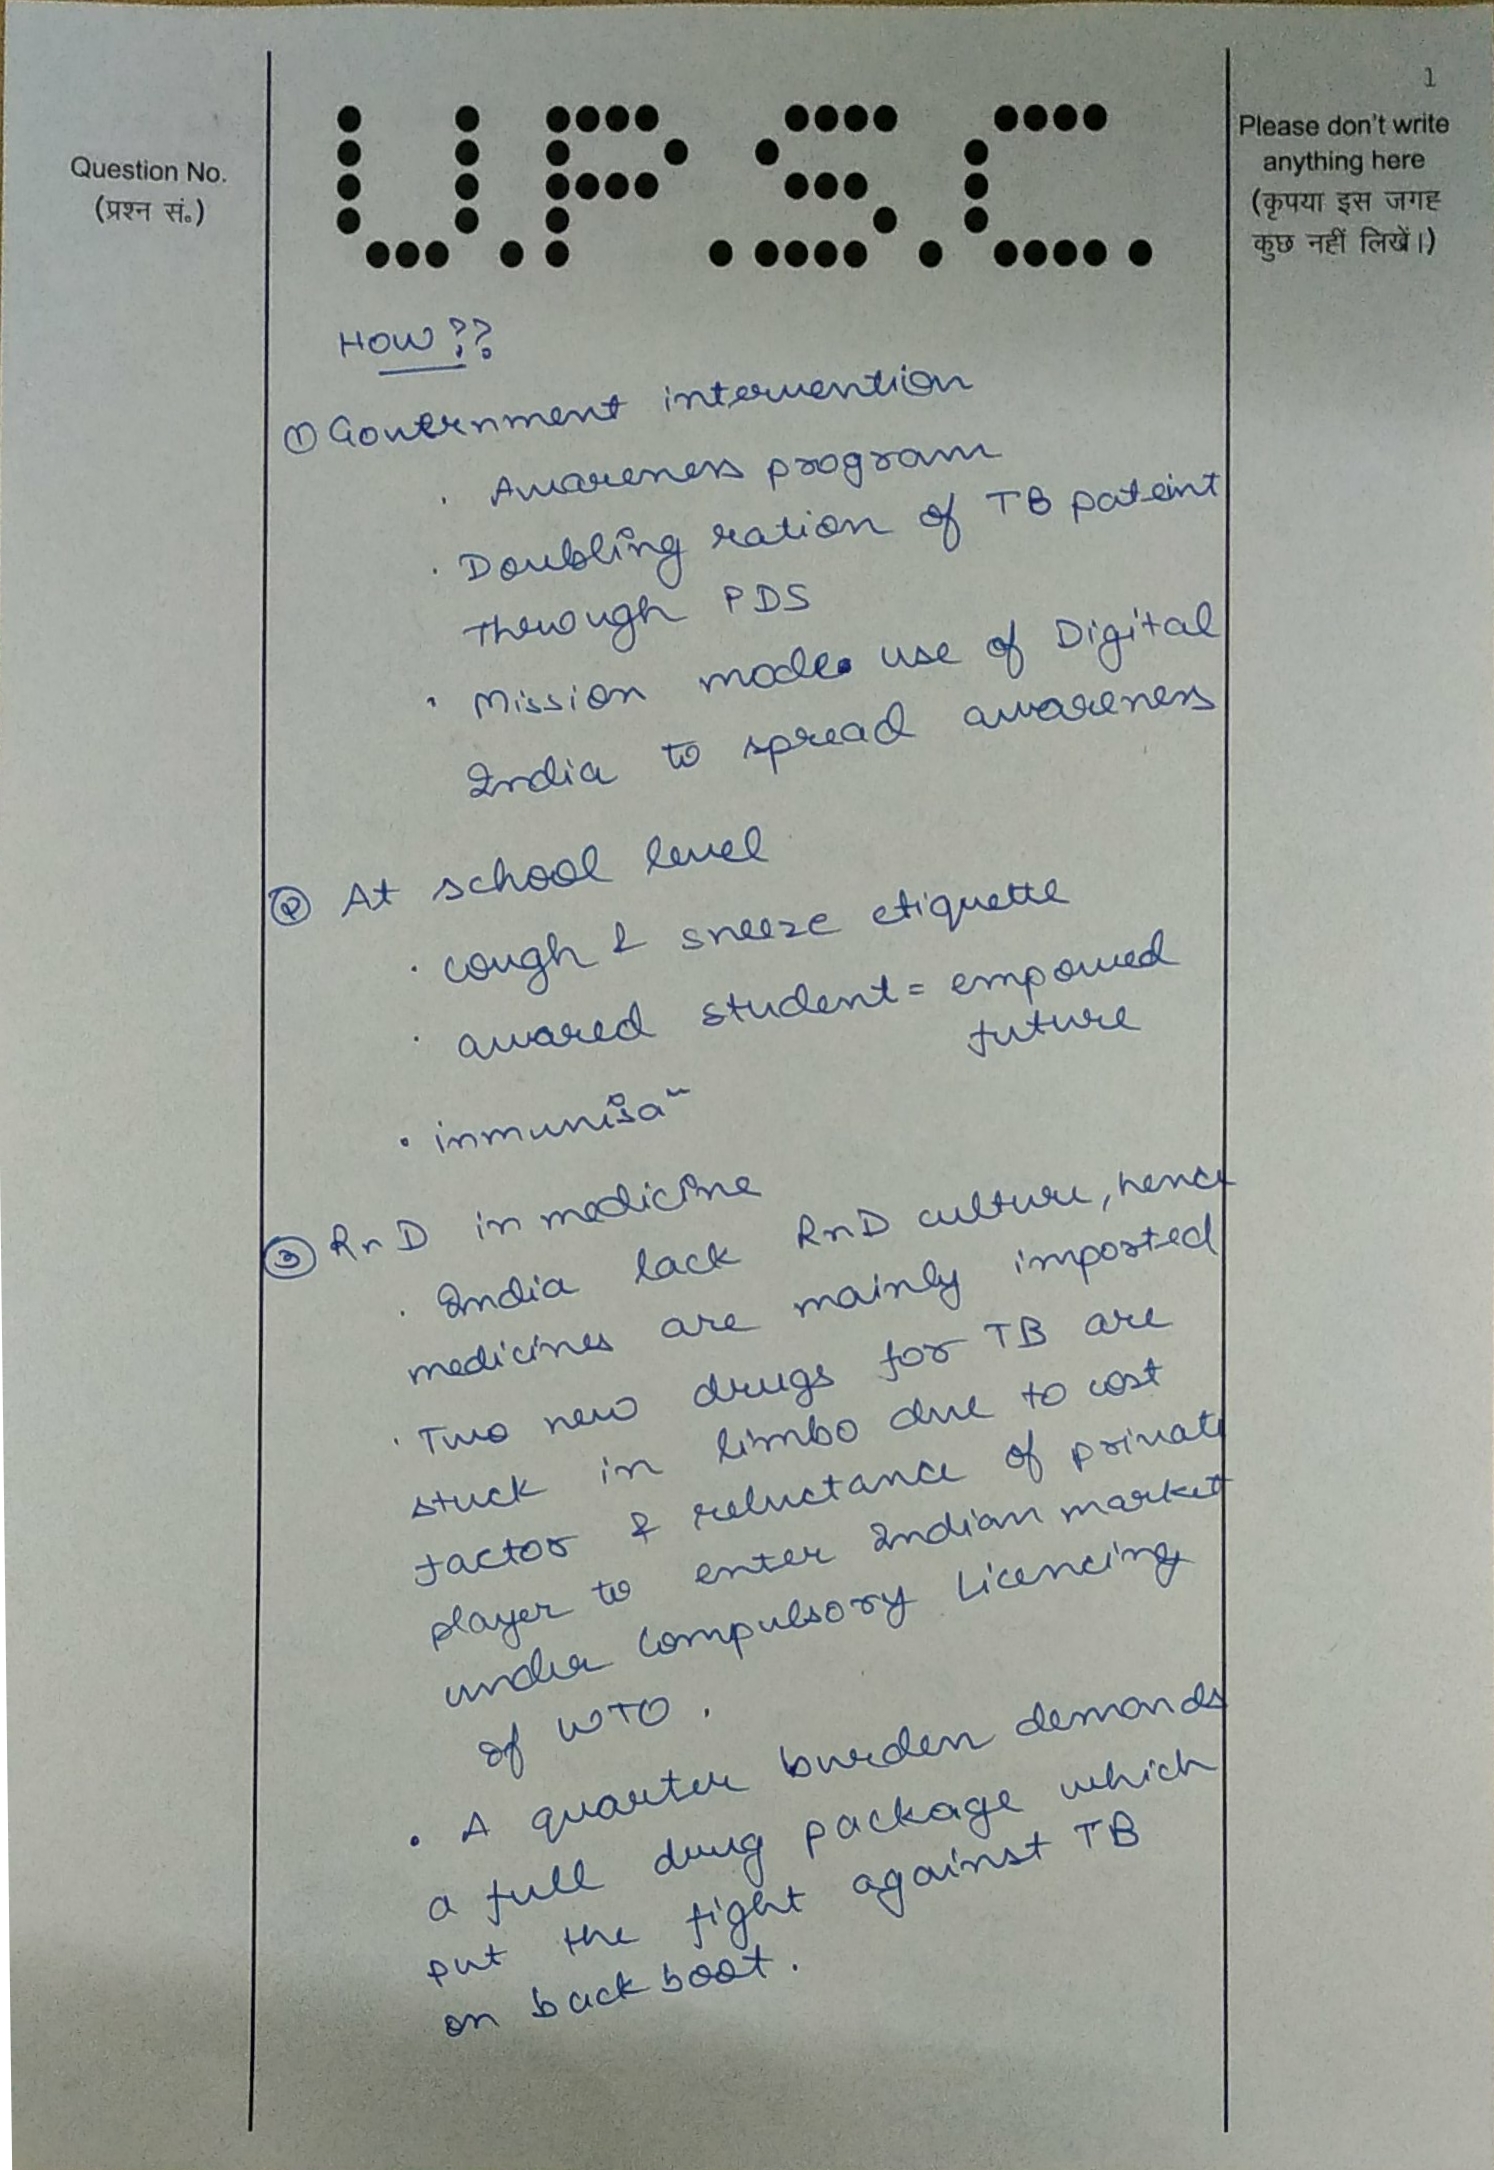 1
Question No.
(प्रश्न सं.)
U.P.S.C.
Please don't write
anything here
(कृपया इस जगह
कुछ नहीं लिखें।)
HOW ??
① Government intervention
· Awareness program
· Doubling ration of TB pateint
through PDS
· Mission mode use of Digital
India to spread awareness
② At school level
· cough & sneeze etiquette
· awared student = empowed
future
· inmunisa~
③ RnD in medicine
· India lack RnD culture, hence
medicines are mainly imported
· Two new drugs for TB are
stuck in limbo due to cost
factor & reluctance of private
player to enter Indian market
under Compulsory Licencing
of WTO.
· A quarter burden demands
a full drug package which
put the fight against TB
on back boot.